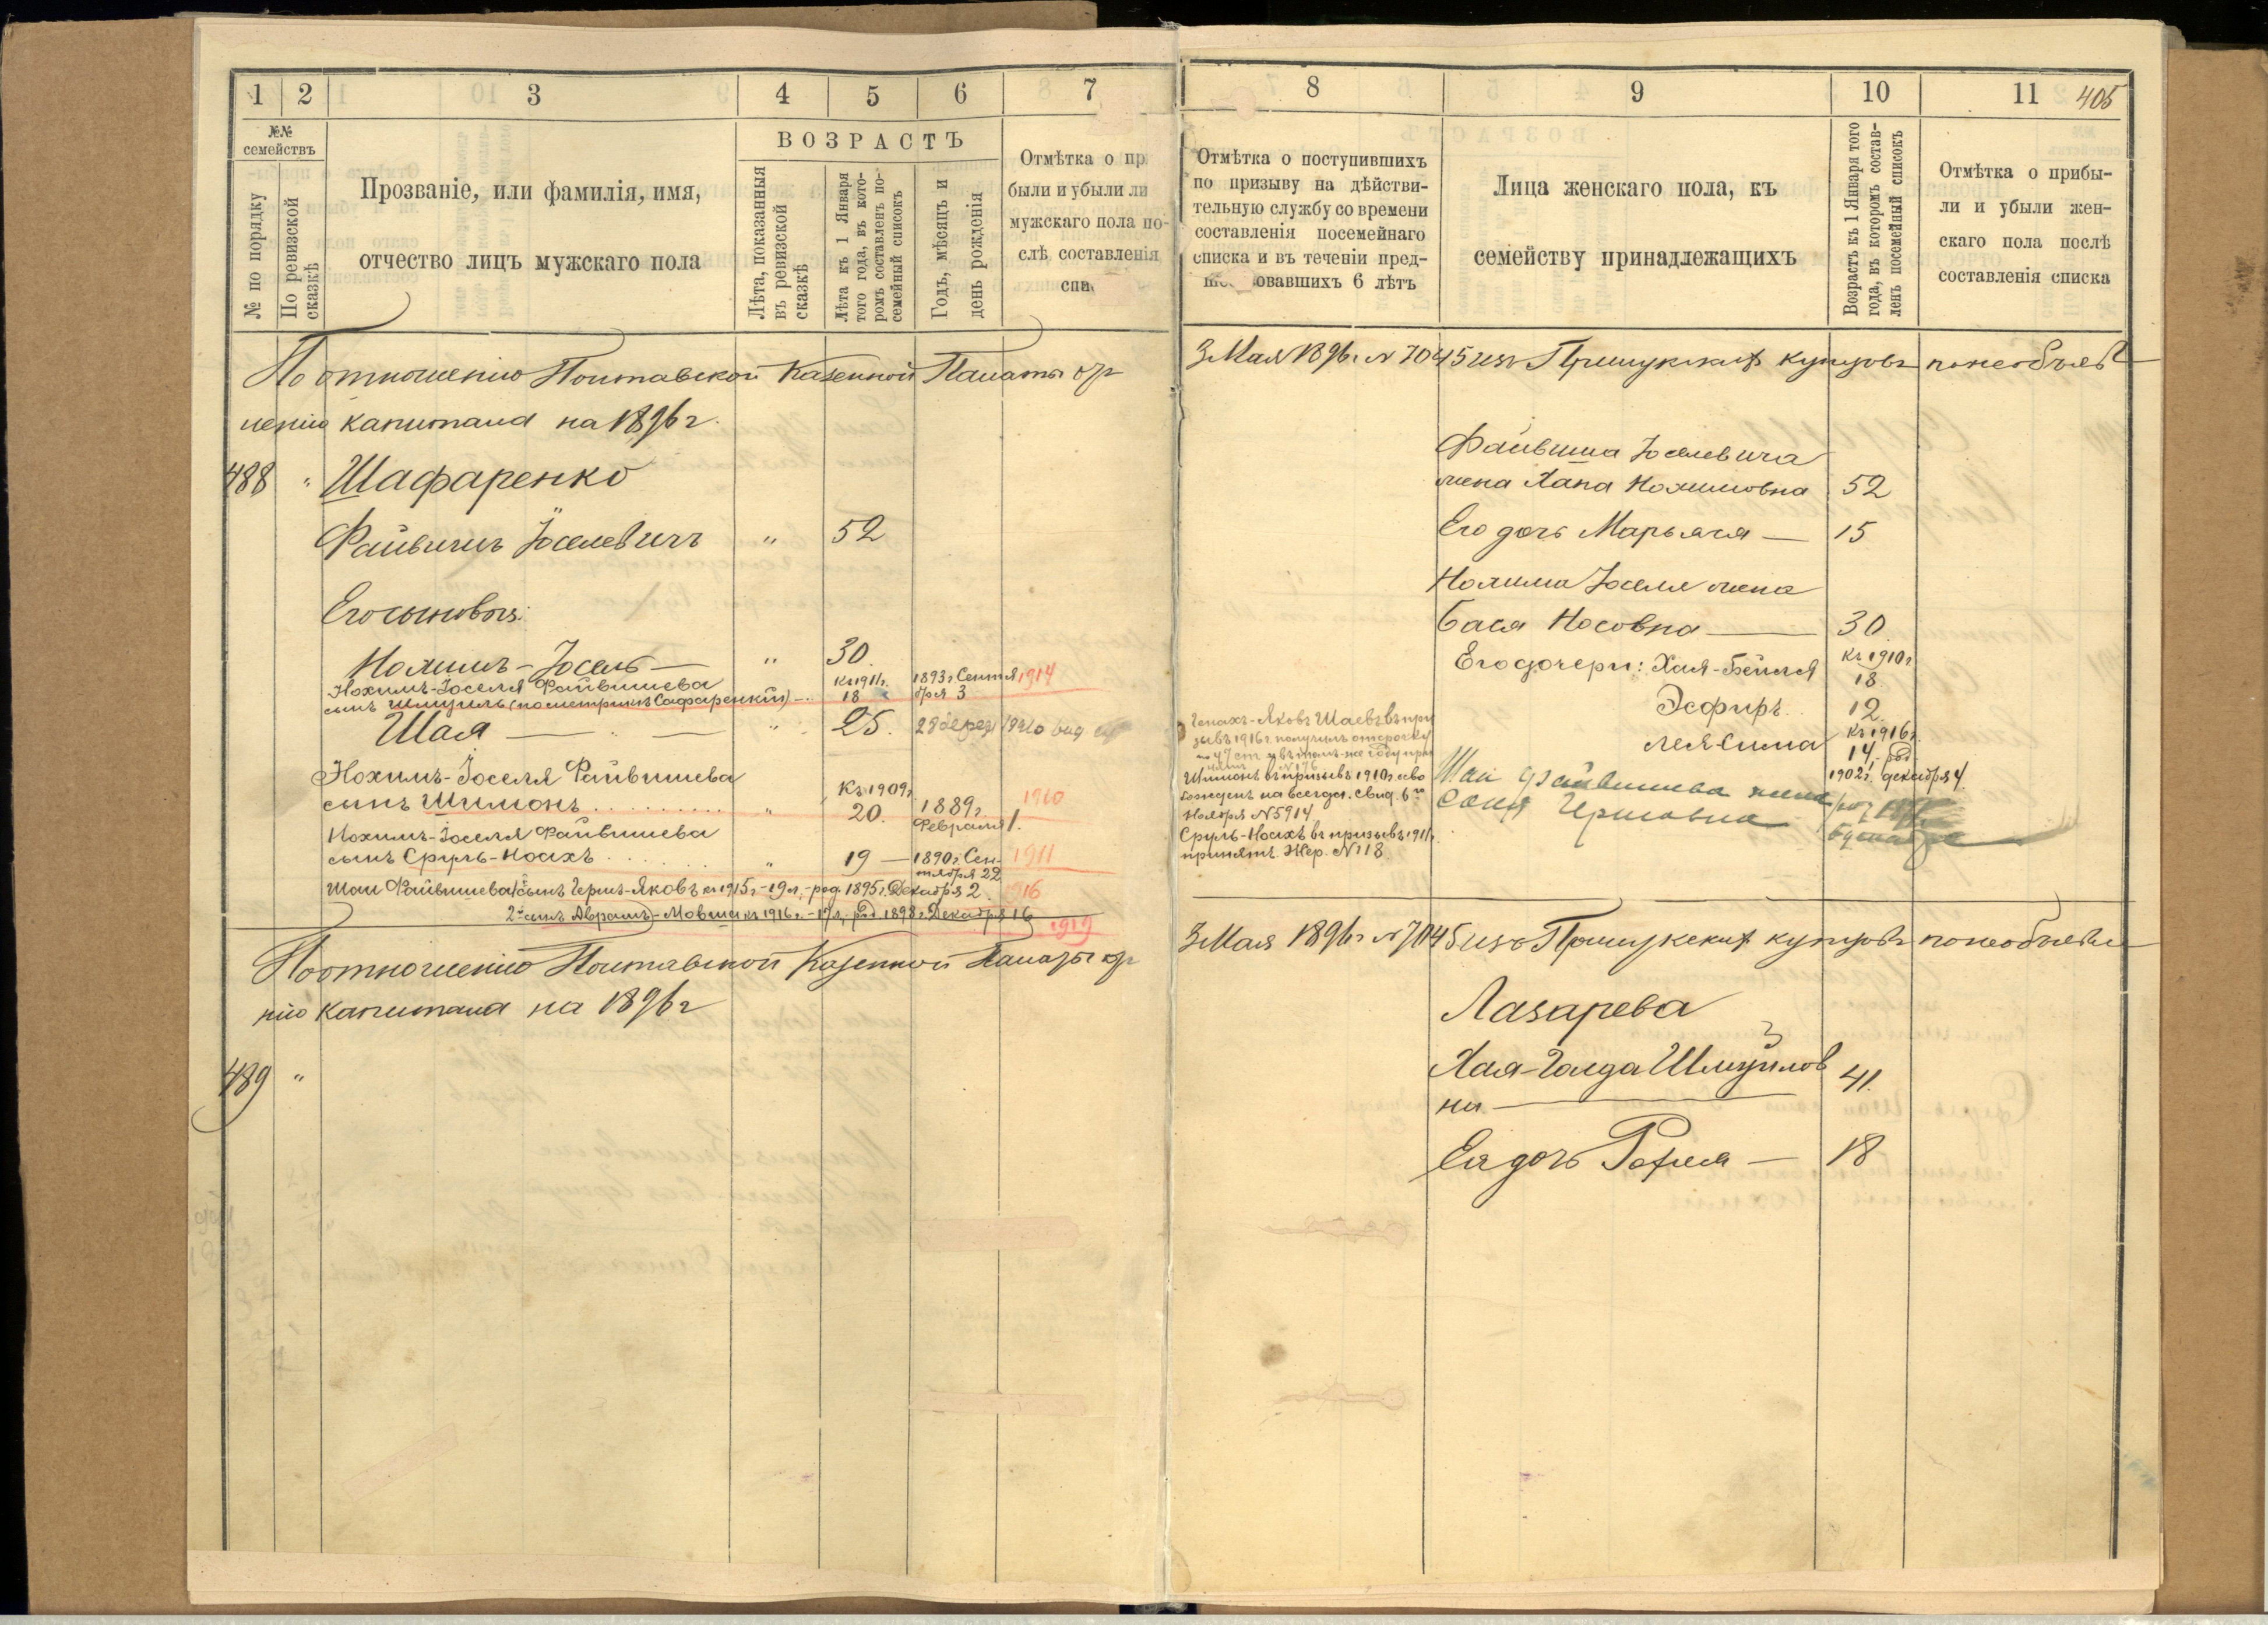 1 2 3 4 5 6 7
№№ семействъ
№ по порядку
По ревизской сказкѣ
Прозваніе, или фамилія, имя,
отчество лицъ мужскаго пола
ВОЗРАСТЪ
Лѣта, показанныя
въ ревизской
сказкѣ
Лѣта къ 1 Января
того года, въ кото-
ромъ составленъ по-
семейный списокъ
Годъ, мѣсяцъ и
день рожденія
Отмѣтка о пр
были и убыли ли
мужскаго пола по-
слѣ составленія
спи
По отношенію Полтавской Казенной Палаты отъ
ленію капитала на 1896 г.
488 " Шафаренко
Файвишъ Іоселевичъ " 52
Его сыновья:
Нохимъ-Іосель — " 30
Нохимъ-Іоселя Файвишева къ 1911г. 1893г. Сентя 1914
сынъ Шмуиль (по метрикѣ Сафаренкій) — 18 бря 3
Шая — " — " 25.
Нохимъ-Іоселя Файвишева Къ 1909г
сынъ Шимонъ . . . . . . . . . . " 20. 1889г. Февраля 1. 1910
Нохимъ-Іоселя Файвишева
сынъ Сруль-Ноахъ . . . . . . . " 19 — 1890г. Сен- 1911
тября 22
Шаи Файвишева 1й сынъ Герцъ-Яковъ къ 1915г. - 19 л. - род. 1895г. Декабря 2 1916
2й сынъ Авраамъ-Мовша къ 1916г. - 17 л. род 1898г. Декабря 16
1919
По отношенію Полтавской Казенной Палаты отъ
нію капитала на 1896 г
489 "
8 9 10 11 405
Отмѣтка о поступившихъ
по призыву на дѣйстви-
тельную службу со времени
составленія посемейнаго
списка и въ теченіи пред-
ше овавшихъ 6 лѣтъ
Лица женскаго пола, къ
семейству принадлежащихъ
Возрастъ къ 1 Января того
года, въ которомъ состав-
ленъ посемейный списокъ
Отмѣтка о прибы-
ли и убыли жен-
скаго пола послѣ
составленія списка
3 Мая 1896г. № 7045 изъ Прилукскихъ купцовъ по необъяв
Файвиша Іоселевича
жена Хана Нохимовна 52
Его дочь Марьяся — 15
Нохима Іоселя жена
Бася Носовна — 30
Его дочери: Хая-Бейля къ 1910г. 18
Эсфирь. 12.
Лея-Сима къ 1916г. 14, род
1902г. декабря 4.
-Яковъ Шаевъ въ при
зывѣ 1916г. получилъ отсрочку
Шимонъ въ призывѣ 1910г. осво
божденъ на всегда. Свид. 6го
Ноября № 5914
Сруль-Ноахъ въ призывѣ 1911г.
принятъ. Жер. № 118.
Шаи Файвишева жена
Соня Гершовна
3 Мая 1896г № 7045 изъ Прилукскихъ купцовъ по необъявле
Лазарева
Хая-Голда Шмуйлов
на — 41.
Ея дочь Рахля — 18